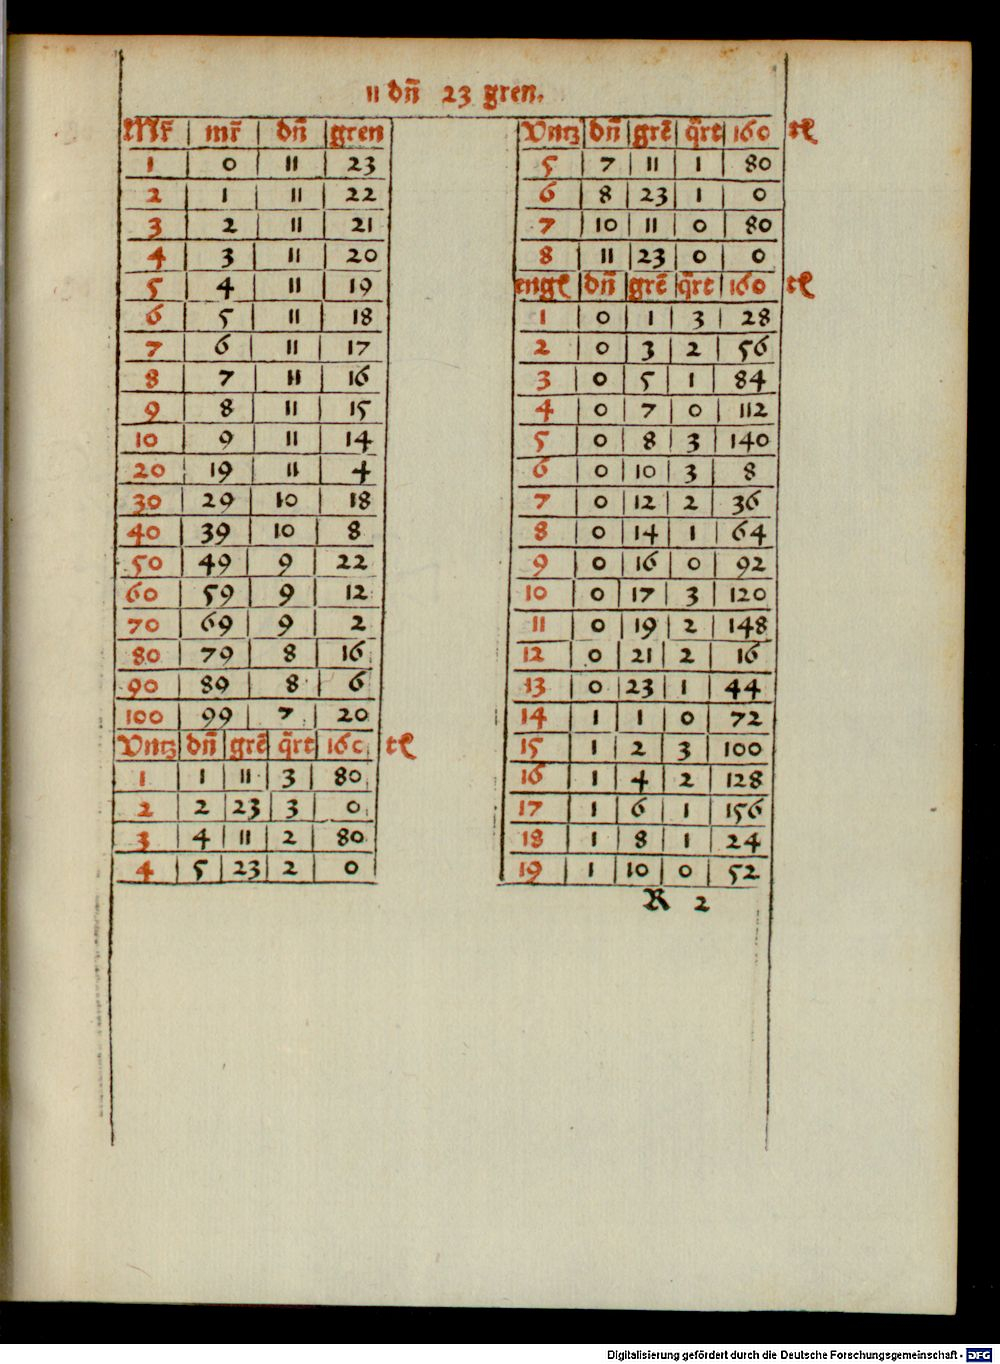 11 dñ 23 gren.
Mr̃ mr̃ dñ gren
1 0 11 23
2 1 11 22
3 2 11 21
4 3 11 20
5 4 11 19
6 5 11 18
7 6 11 17
8 7 11 16
9 8 11 15
10 9 11 14
20 19 11 4
30 29 10 18
40 39 10 8
50 49 9 22
60 59 9 12
70 69 9 2
80 79 8 16
90 89 8 6
100 99 7 20
Vntz dñ grẽ q̃rt 160 tl
1 1 11 3 80
2 2 23 3 0
3 4 11 2 80
4 5 23 2 0
Vntz dñ grẽ q̃rt 160 tl
5 7 11 1 80
6 8 23 1 0
7 10 11 0 80
8 11 23 0 0
engl dñ grẽ q̃rt 160 tl
1 0 1 3 28
2 0 3 2 56
3 0 5 1 84
4 0 7 0 112
5 0 8 3 140
6 0 10 3 8
7 0 12 2 36
8 0 14 1 64
9 0 16 0 92
10 0 17 3 120
11 0 19 2 148
12 0 21 2 16
13 0 23 1 44
14 1 1 0 72
15 1 2 3 100
16 1 4 2 128
17 1 6 1 156
18 1 8 1 24
19 1 10 0 52
R 2
Digitalisierung gefördert durch die Deutsche Forschungsgemeinschaft - DFG